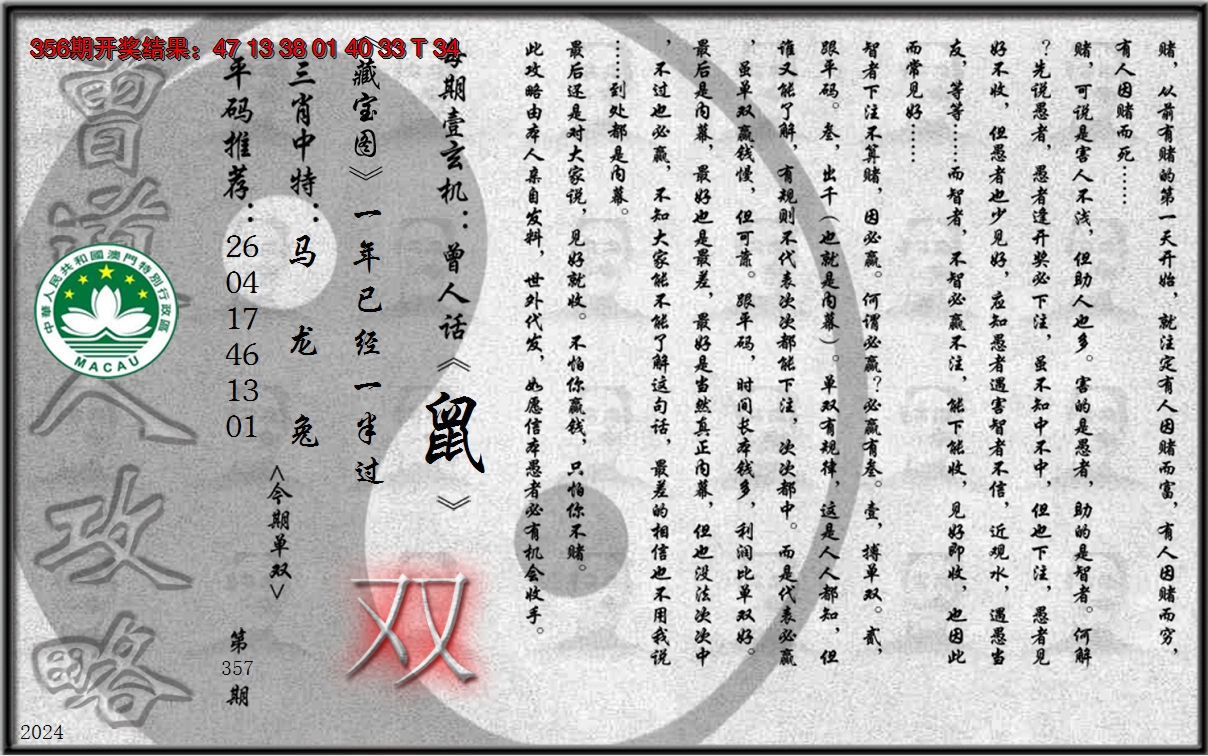 356期开奖结果：47 13 38 01 40 33 T 34
赌，从前有赌的第一天开始，就注定有人因赌而富，有人因赌而穷，
有人因赌而死……
赌，可说是害人不浅，但助人也多。害的是愚者，助的是智者。何解
？先说愚者，愚者逢开奖必下注，虽不知中不中，但也下注，愚者见
好不收，但愚者也少见好，应知愚者遇害智者不信，近观水，遇愚当
友，等等……而智者，不智必赢不注，能下能收，见好即收，也因此
而常见好……
智者下注不算赌，因必赢。何谓必赢？必赢有叁。壹，搏单双。贰，
跟平码。叁，出千（也就是内幕）。单双有规律，这是人人都知，但
谁又能了解，有规则不代表次次都能下注，次次都中。而是代表必赢
，虽单双赢钱慢，但可靠。跟平码，时间长本钱多，利润比单双好。
最后是内幕，最好也是最差，最好是当然真正内幕，但也没法次次中
，不过也必赢，不知大家能不能了解这句话，最差的相信也不用我说
……到处都是内幕。
最后还是对大家说，见好就收。不怕你赢钱，只怕你不赌。
此攻略由本人亲自发料，世外代发，如愿信本愚者必有机会收手。
每期壹玄机：曾人话《鼠》
《藏宝图》一年已经一半过
双
三肖中特：马 龙 兔
<今期单双>
平码推荐：26 04 17 46 13 01
第357期
曾道人攻略
中華人民共和國澳門特別行政區
MACAU
2024